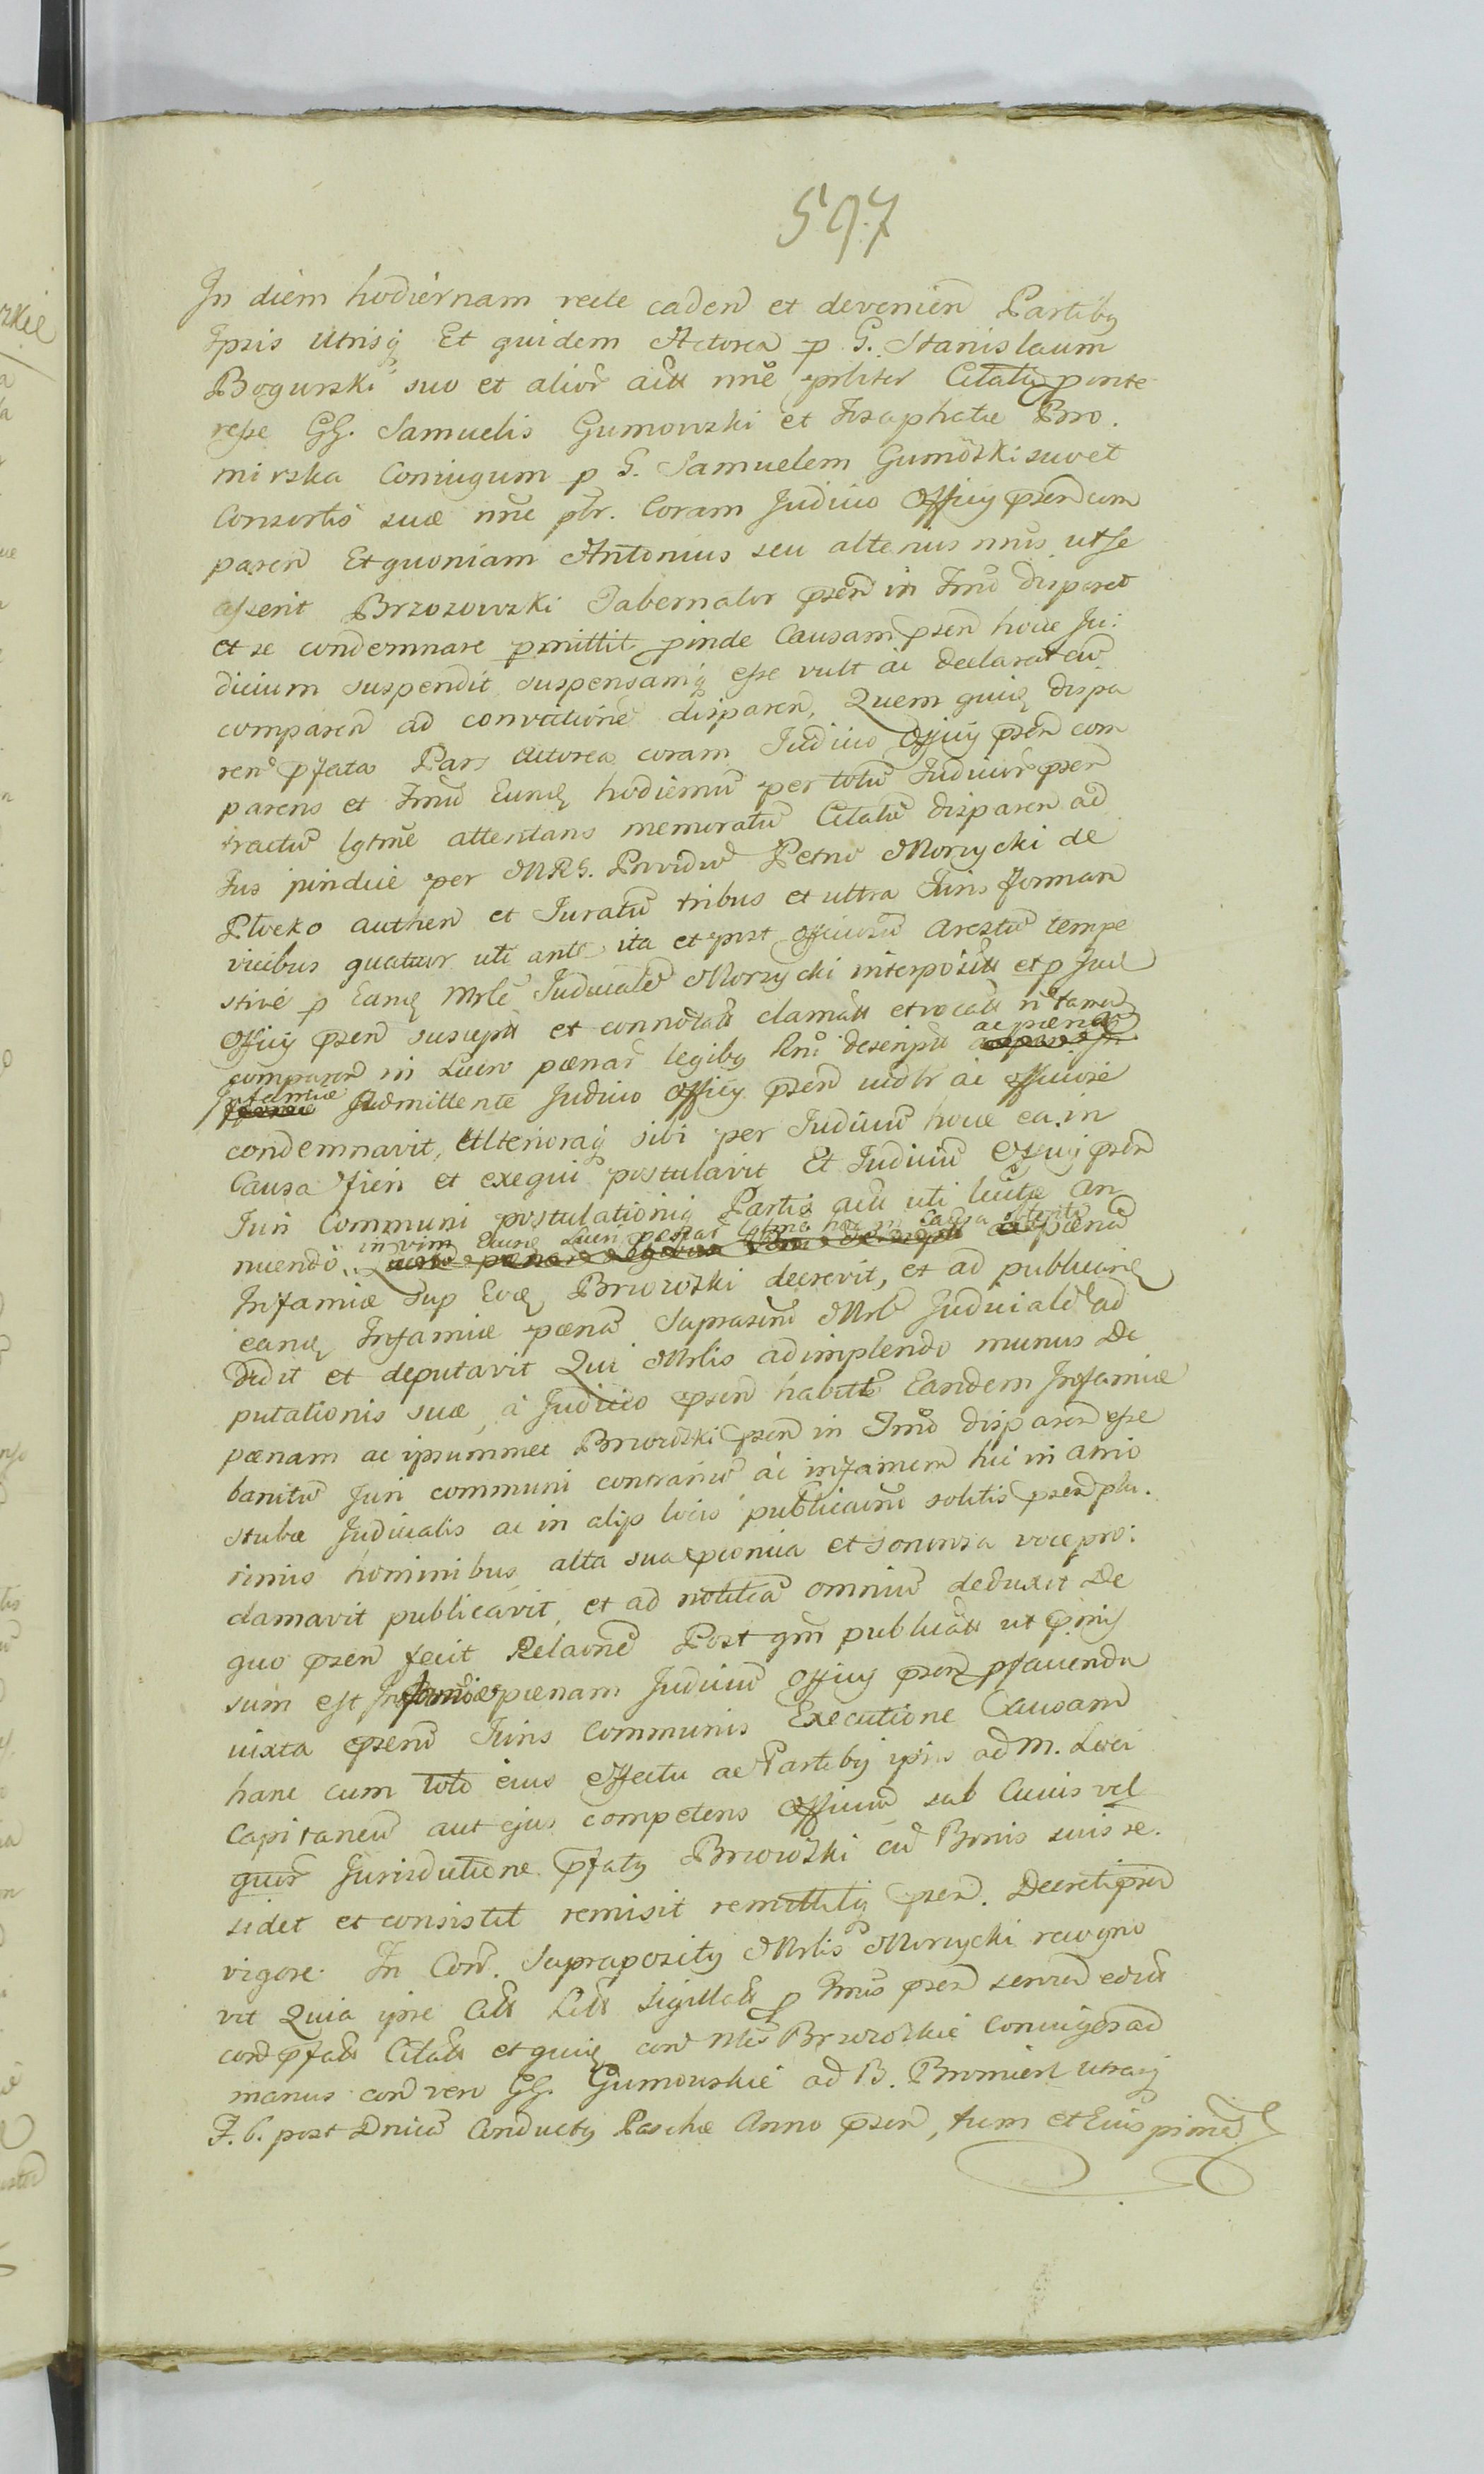 597
In diem hodiernam recte caden et devenien Partibq
Ipsis Utrisq Et quidem Actorea p G. Stanislaum
Bogurski suo et alior actt nne prliter Citatq parte
resse GG. Samuelis Gumowski et Josaphatae Bro.
mirska Coniugum p G. Samuelem Gumoski suo et
Consortis suae nne plr. Coram Judicio Officij psen com
paren Et quoniam Antonius seu alterius nnis ut se
asserit Brzozowski Tabernator psen in Tmo disparet
et se condemnare pmittit pinde Causam psen hocce Ju:
dicium suspendit suspensamq esse vult ac declarat cu
comparen ad convictione disparen, Quem quid dispa
ren pfata Pars Actorea coram Judicio Officij psen com
parens et Tmu Eund hodiernu per totu Judicior psen
tractu lgtme attentans memoratu Citatu disparen ad
Jus pinde per MRG. Providu Petru Morzycki de
Plocko authen et Juratu tribus et ultra Juris forman
vicibus quatuor uti ante ita et post Officiosu Arestu tempe
stive p Eund Mrle Judiciale Morzycki interpositt et p Jud
Officij psen susceptt et connotatt clamatt et vocatt n tamen
comparen in Lucro paenar legibq Rni descriptt ac paena
Infamiae Admittente Judicio Officij psen uidlr ac officiose
condemnavit, Ulterioraq sibi per Judiciu hocce ea in
Causa fieri et exequi postulavit Et Judiciu Officij psen
Juri Communi postulationiq Partis actt uti licitae an
nuendo in vim Eiusd Lucri paenar lgtme hac in Causa obtento paena
Infamiae sup Eod Brzozoski decrevit, et ad publicand
eand Infamiae paena Suprascriu Mrle Judiciale ad
didit et deputavit Qui Mrlis adimplendo munus De
putationis suae à Judicio psen habitt Eandem Infamiae
paenam ac ipsummet Brzozoski psen in Tmo disparen esse
banitu Juri communi contrariu ac infamem hic in atrio
stubae Judicialis ac in alijs locis publicaoni solitis psen plu.
rimis hominibus alta sua pconica et sonorosa voce pro:
clamavit publicavit, et ad notitia omniu deduxit De
quo psen fecit Relaone Post qm publicatt ut pmis
sum est Infamiae paenam Judiciu Officij psen pfavendu
iuxta psens Juris Communis Executione Causam
hanc cum toto eius effectu ac Partibq ipsis ad M. Loci
Capitaneu aut ejus competens Officiu sub Cuius vel
quor Jurisdictione pfatq Brzozoski cu Bonis suis re.
sidet et consistit remisit remittitq psen. Decreti psen
vigore. In Con. Suprapositq Mrlis Morzycki recogno
vit Quia ipse Citt Litt Sigillatt p Tmis psen servien editt
con pfatt Citatt et quid con Nles Brzozoskie Coniuges ad
manus con vero GG. Gumowskie ad B. Bromierz utrasq
F. 6. post Dnica Conductq Paschae Anno psen, tum et Eius pima